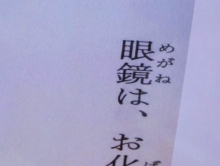 眼鏡は、お化
めがね